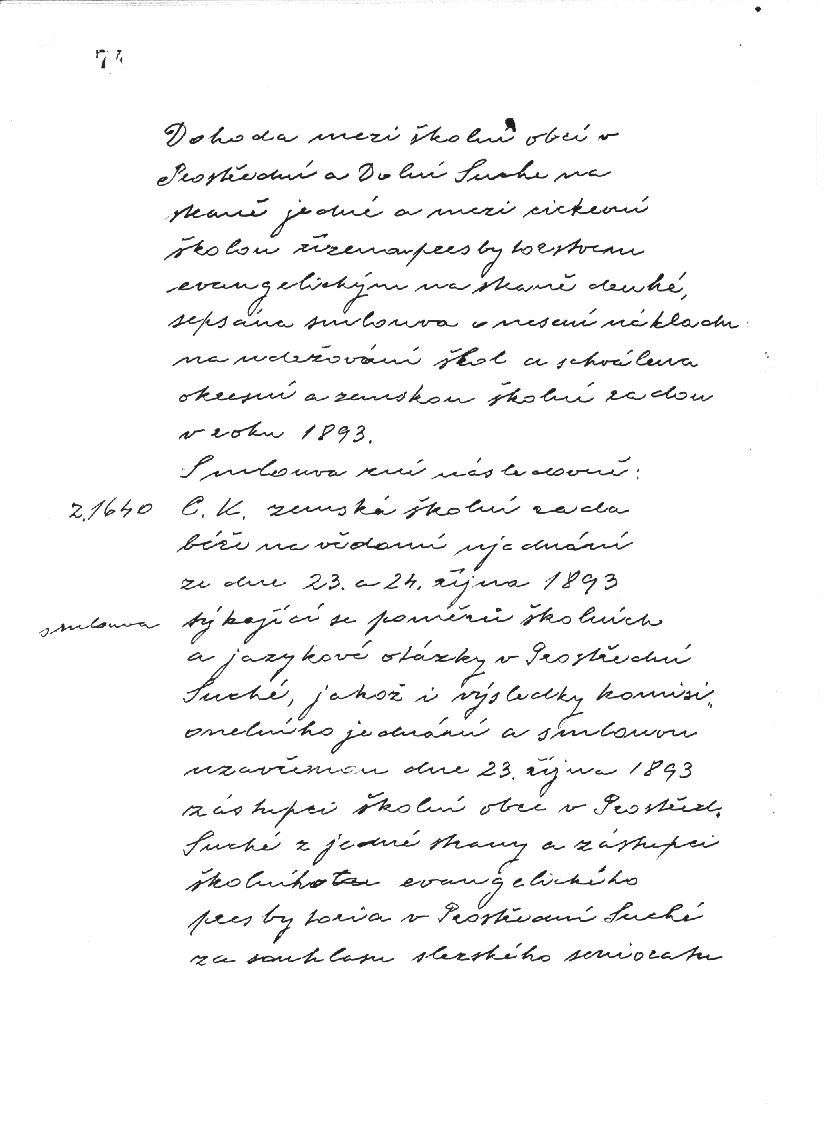 74
Dohoda mezi školní obcí v
Prostřední a Dolní Suche na
straně jedné a mezi církevní
školou řízenou presbyterstvem
evangelickým na straně druhé,
sepsána smlouva o nesení nákladu
na udržování škol a schválena
okresní a zemskou školní radou
v roku 1893.
Smlouva zní následovně:
z.1640 C. K. zemská školní rada
béře na vědomí ujednání
ze dne 23. a 24. října 1893
smlouva týkající se poměrů školních
a jazykové otázky v Prostřední
Suché, jakož i výsledky komisi„
onelního jednání a smlouvou
uzavřenou dne 23. října 1893
zástupci školní obce v Prostřed.
Suché z jedné strany a zástupci
školního evangelického
presbyteria v Prostřední Suché
za souhlasu slezského seniorátu